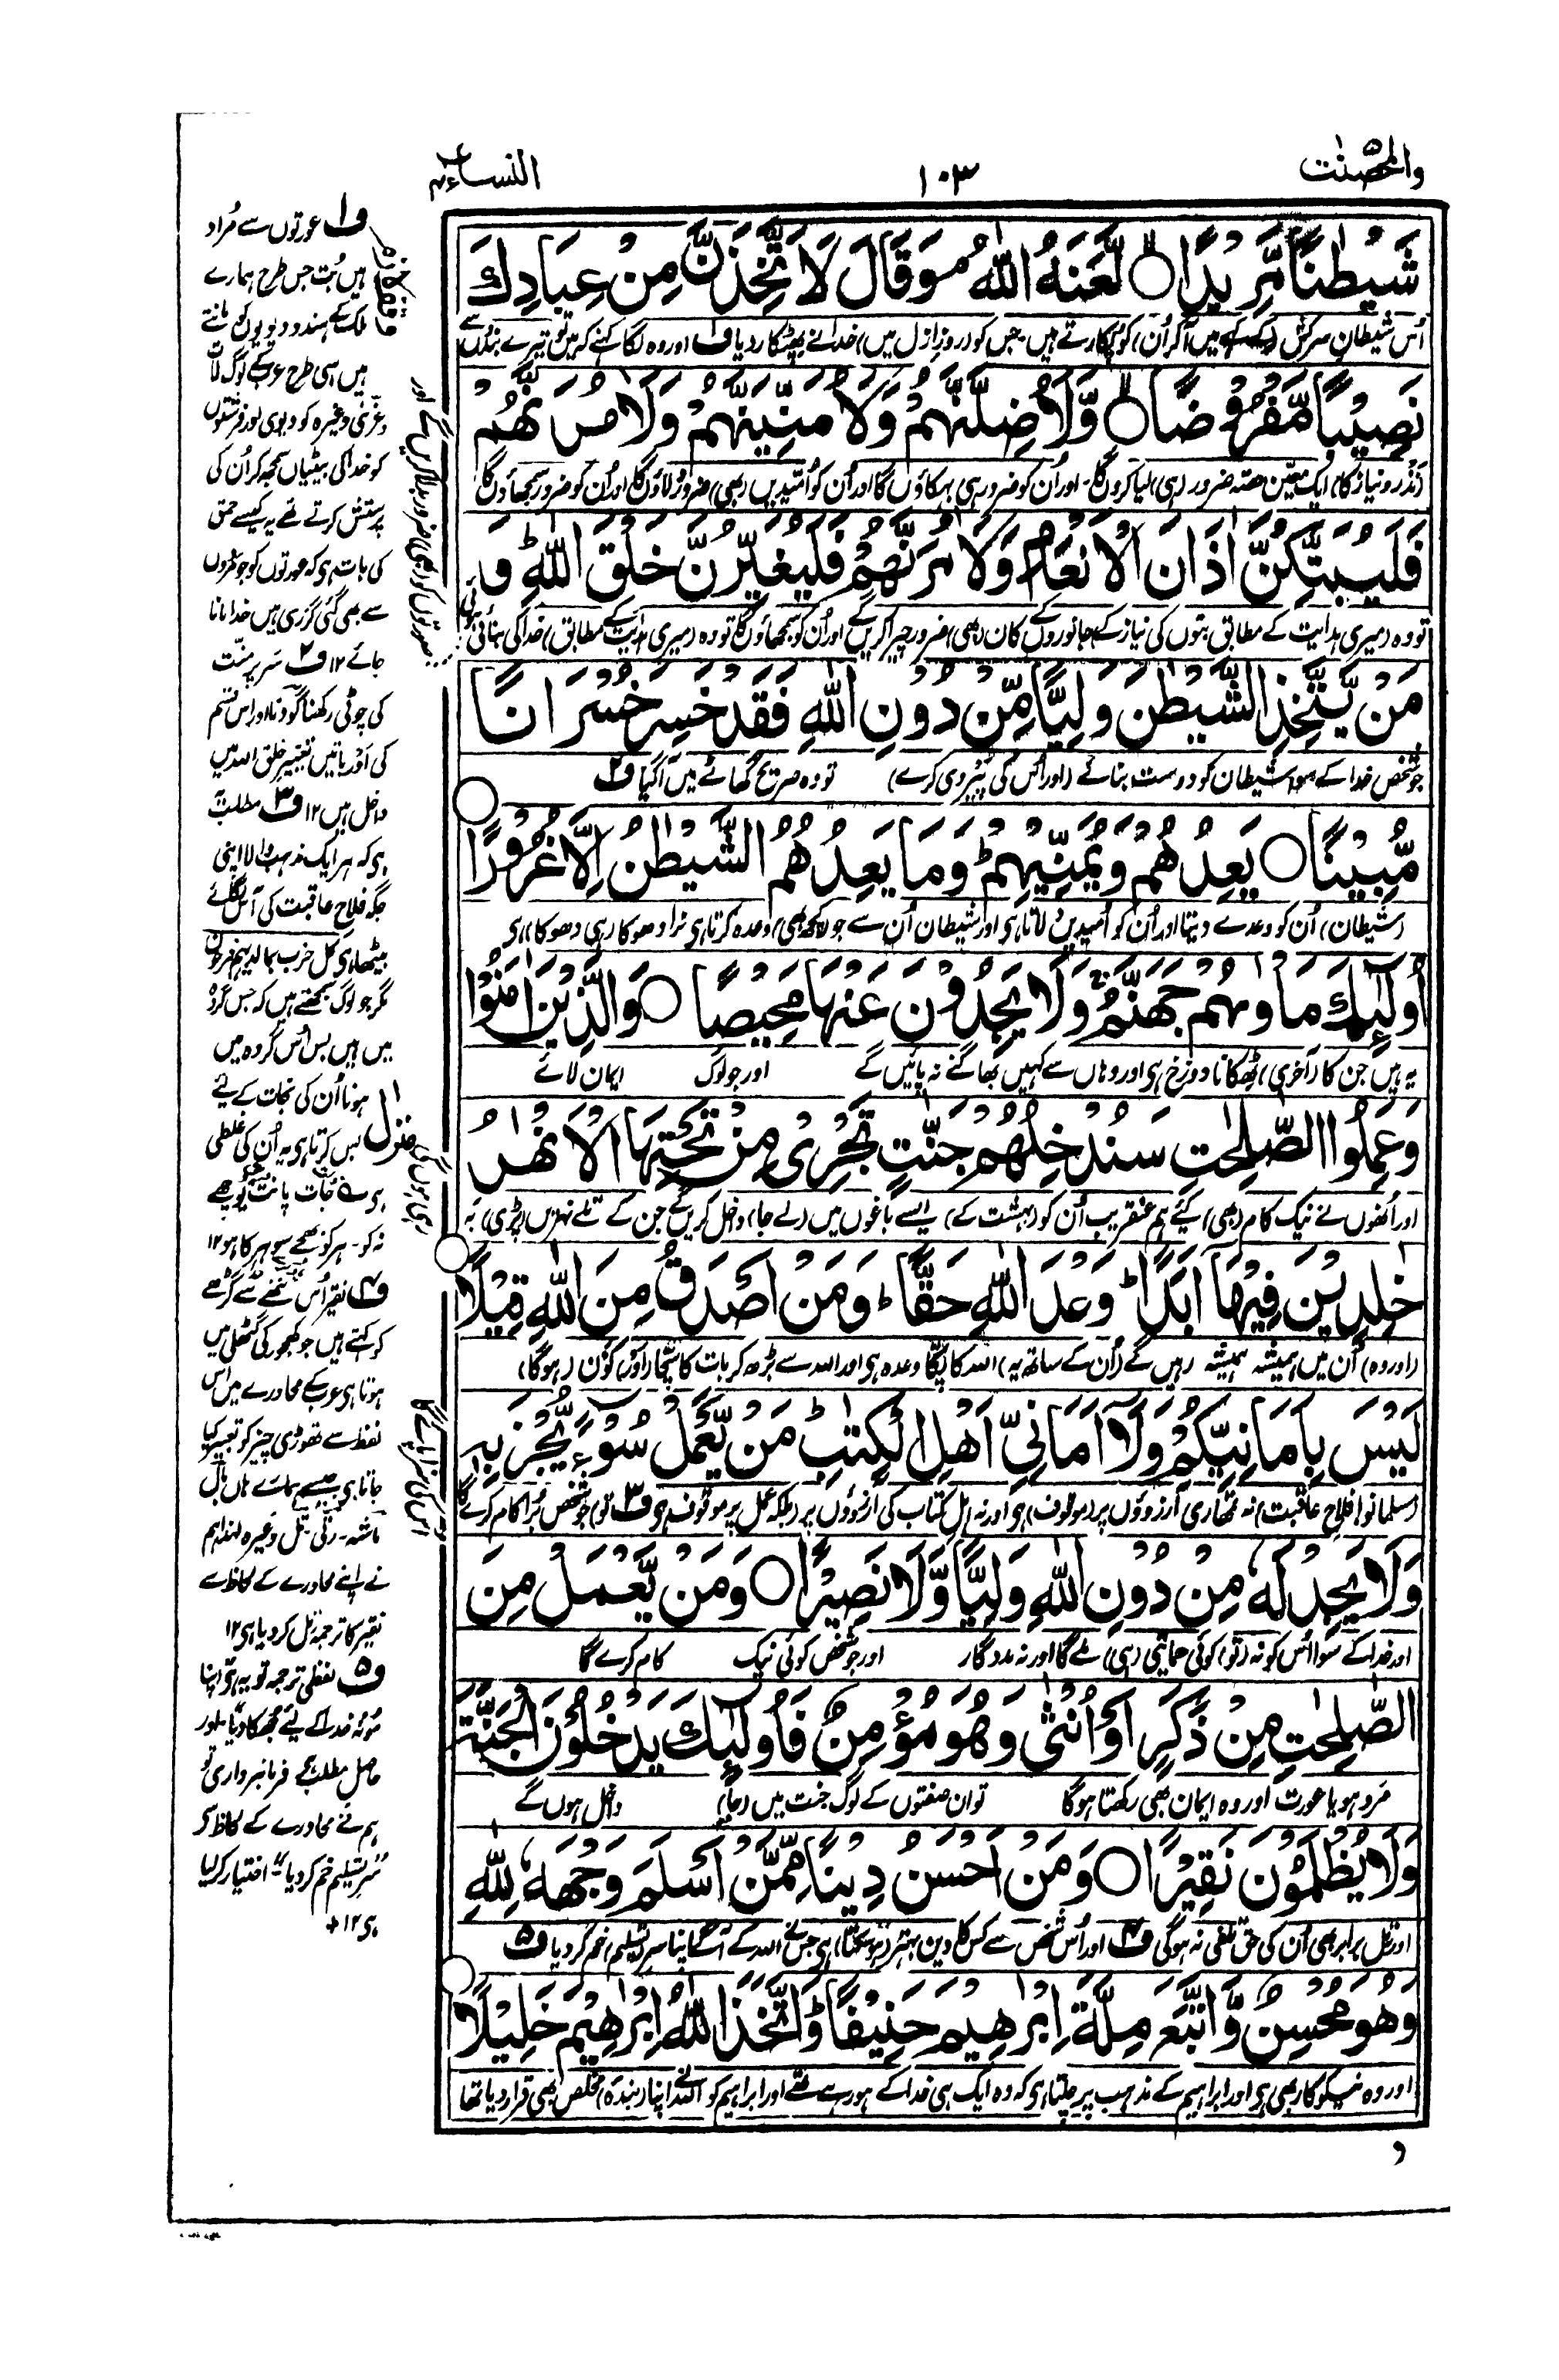 والمحصنت ٥
١٠٣
النساء ٤
شَيْطٰنًا مَّرِيْدًا ۙ لَّعَنَهُ اللّٰهُ ۘ وَقَالَ لَاَتَّخِذَنَّ مِنْ عِبَادِكَ
اُس شیطان سرکش (کے کہے میں آکر اُن) کو پکارتے ہیں جس کو (روزِ ازل میں) خدا نے پھٹکار دیا ف۱ اور وہ لگا کہنے کہ میں تو تیرے بندوں سے
نَصِيْبًا مَّفْرُوْضًا ۙ وَّلَاُضِلَّنَّهُمْ وَلَاُمَنِّيَنَّهُمْ وَلَاٰمُرَنَّهُمْ
(نذر و نیاز کا) ایک معیّن حصّہ ضرور (ہی) لیا کروں گا۔ اور اُن کو ضرور ہی بہکاؤں گا اور اُن کو اُمّیدیں (بھی) ضرور دلاؤں گا اور اُن کو ضرور سمجھاؤں گا
فَلَيُبَتِّكُنَّ اٰذَانَ الْاَنْعَامِ وَلَاٰمُرَنَّهُمْ فَلَيُغَيِّرُنَّ خَلْقَ اللّٰهِ ؕ وَ
تو وہ (میری ہدایت کے مطابق بتوں کی نیاز کے) جانوروں کے کان (بھی) ضرور چیرا کریں گے اور اُن کو سمجھاؤں گا تو وہ (میری ہدایت کے مطابق) خدا کی بنائی ہوئی
صورتوں کو (بھی) ضرور بدلا کریں گے اور
مَنْ يَّتَّخِذِ الشَّيْطٰنَ وَلِيًّا مِّنْ دُوْنِ اللّٰهِ فَقَدْ خَسِرَ خُسْرَانًا
جو شخص خدا کے سوا شیطان کو دوست بنائے (اور اُس کی پیروی کرے) تو وہ صریح گھاٹے میں آگیا ف۲
مُّبِيْنًا ○ يَعِدُهُمْ وَيُمَنِّيْهِمْ ؕ وَمَا يَعِدُهُمُ الشَّيْطٰنُ اِلَّا غُرُوْرًا
(شیطان) اُن کو وعدے دیتا اور اُن کو اُمیدیں دلاتا ہی اور شیطان اُن سے جو کچھ (بھی) وعدہ کرتا ہی نرا دھوکا (ہی دھوکا) ہی
اُولٰٓئِكَ مَاْوٰىهُمْ جَهَنَّمُ ۫ وَلَا يَجِدُوْنَ عَنْهَا مَحِيْصًا ○ وَالَّذِيْنَ اٰمَنُوْا
یہ ہیں جن کا (آخری) ٹھکانا دوزخ ہی اور وہاں سے کہیں بھاگنے نہ پائیں گے اور جو لوگ ایمان لائے
وَعَمِلُوا الصّٰلِحٰتِ سَنُدْخِلُهُمْ جَنّٰتٍ تَجْرِيْ مِنْ تَحْتِهَا الْاَنْهٰرُ
اور اُنھوں نے نیک کام (بھی) کیے ہم عنقریب اُن کو (بہشت کے) ایسے باغوں میں (لے جا) داخل کریں گے جن کے تلے نہریں (پڑی) بہ
رہی ہوں گی
خٰلِدِيْنَ فِيْهَآ اَبَدًا ؕ وَعْدَ اللّٰهِ حَقًّا ؕ وَمَنْ اَصْدَقُ مِنَ اللّٰهِ قِيْلًا
(اور وہ) اُن میں ہمیشہ ہمیشہ رہیں گے (اُن کے ساتھ یہ) اللہ کا پکّا وعدہ ہی اور اللہ سے بڑھ کر بات کا سچّا (اور) کون (ہوگا)
لَيْسَ بِاَمَانِيِّكُمْ وَلَآ اَمَانِيِّ اَهْلِ الْكِتٰبِ ؕ مَنْ يَّعْمَلْ سُوْٓءًا يُّجْزَ بِهٖ
(مسلمانو! فلاحِ عاقبت) نہ تمھاری آرزوؤں پر (موقوف) ہی اور نہ اہلِ کتاب کی آرزوؤں پر (بلکہ عمل پر موقوف ہی ف۳ تو) جو شخص بُرا کام کرے گا
اس کی سزا پائے گا
وَلَا يَجِدْ لَهٗ مِنْ دُوْنِ اللّٰهِ وَلِيًّا وَّلَا نَصِيْرًا ○ وَمَنْ يَّعْمَلْ مِنَ
اور خدا کے سوا اُس کو نہ (تو) کوئی حمایتی (ہی) ملے گا اور نہ مددگار اور جو شخص کوئی نیک کام کرے گا
الصّٰلِحٰتِ مِنْ ذَكَرٍ اَوْ اُنْثٰى وَهُوَ مُؤْمِنٌ فَاُولٰٓئِكَ يَدْخُلُوْنَ الْجَنَّةَ
مرد ہو یا عورت اور وہ ایمان بھی رکھتا ہوگا تو ان صفتوں کے لوگ جنت میں (جا) داخل ہوں گے
وَلَا يُظْلَمُوْنَ نَقِيْرًا ○ وَمَنْ اَحْسَنُ دِيْنًا مِّمَّنْ اَسْلَمَ وَجْهَهٗ لِلّٰهِ
اور تل برابر بھی اُن کی حق تلفی نہ ہوگی ف۴ اور اُس شخص سے کس کا دین بہتر (ہو سکتا) ہی جس نے اللہ کے آگے اپنا سرِ تسلیم خم کردیا ف۵
وَهُوَ مُحْسِنٌ وَّاتَّبَعَ مِلَّةَ اِبْرٰهِيْمَ حَنِيْفًا ؕ وَاتَّخَذَ اللّٰهُ اِبْرٰهِيْمَ خَلِيْلًا
اور وہ نیکوکار بھی ہی اور ابراہیم کے مذہب پر چلتا ہی کہ وہ ایک ہی خدا کے ہو رہے تھے اور ابراہیم کو اللہ نے اپنا (بندہ) مخلص بھی قرار دیا تھا
و
ف۱ عورتوں سے مُراد
ہیں بُت جس طرح ہمارے
ملک کے ہندو دیویوں کو مانتے
ہیں اسی طرح عرب کے لوگ لات
وعزّٰی وغیرہ کو دیوی اور فرشتوں
کو خدا کی بیٹیاں سمجھ کر اُن کی
پرستش کرتے تھے یہ کیسے حمق
کی بات ہی کہ عورتوں کو جو مردوں
سے بھی گئی گزری ہیں خدا مانا
جائے ۱۲ ف۲ سر پر منت
کی چوٹی رکھنا گودنا اور اس قسم
کی اَور باتیں تغییر خلق اللہ میں
داخل ہیں ۱۲ ف۳ مطلب یہ
ہی کہ ہر ایک مذہب والا اپنی
جگہ فلاحِ عاقبت کی آس لگائے
بیٹھا ہی کل حزب بما لدیہم فرحون
مگر جو لوگ سمجھتے ہیں کہ جس گروہ
میں ہیں بس اُس گروہ میں
ہونا اُن کی نجات کے لیے
بس کرتا ہی یہ اُن کی غلطی
ہی ؎ جات پانت پوچھے
نہ کو۔ ہر کو بھجے سو ہر کا ہو ۱۲
منزل ۱
ف۴ نقیر اُس ننھے سے گڑھے
کو کہتے ہیں جو کھجور کی گٹھلی میں
ہوتا ہی عرب کے محاورے میں اس
لفظ سے تھوڑی چیز کو تعبیر کیا
جاتا ہی جیسے ہمارے ہاں بال
ماشہ۔ رتی۔ تل وغیرہ لہٰذا ہم
نے اپنے محاورے کے لحاظ سے
نقیر کا ترجمہ تل کردیا ہی ۱۲
ف۵ لفظی ترجمہ تو یہ ہی اپنا
مونہ خدا کے لیے جھکا دیا۔ اور
حاصل مطلب ہی فرمانبرداری تو
ہم نے محاورے کے لحاظ سے
"سرِ تسلیم خم کردیا" اختیار کرلیا
ہی ۱۲ +